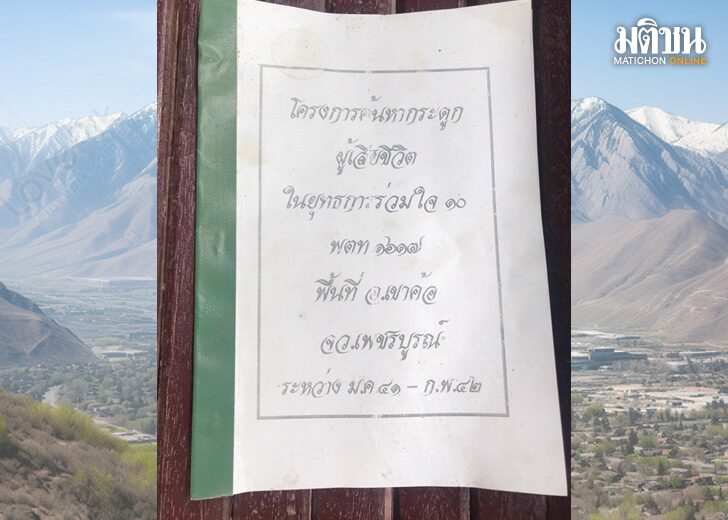 มติชน
MATICHON ONLINE
โครงการค้นหากระดูก
ผู้เสียชีวิต
ในยุทธการร่วมใจ ๑๐
พตท ๑๖๑๗
พื้นที่ อ.เขาค้อ
จว.เพชรบูรณ์
ระหว่าง ม.ค ๔๑ – ก.พ.๔๒